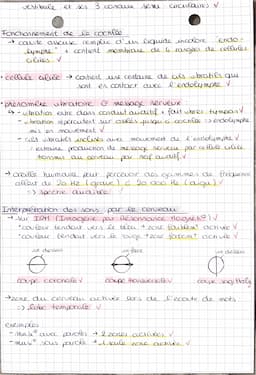 vestibule et ses 3 canaux semi circulaires √
Fonctionnement de la cochlée
→ cavité osseuse remplie d'un liquide incolore "endo-
lymphe" + contient membrane de 4 rangées de cellules
ciliées √
• cellule ciliée → contient une centaine de cils vibratils qui
sont en contact avec l'endolymphe √
• phénomène vibratoire → message nerveux
↳ - vibration entre dans conduit auditif + fait vibrer tympan √
- vibration répercutent sur osselets jusqu'à cochlée → endolymphe
mis en mouvement √
- cils vibratils inclinés avec mouvement de l'endolymphe √
entraine production de message nerveux par cellule ciliée
transmis au cerveau par nerf auditif √
→ oreille humaine peut percevoir des gammes de fréquence
allant de 20 Hz (grave) à 20 000 Hz (aigu) √
→ spectre audible
Interprétation des sons par le cerveau
→ sur IRM (Imagerie par Résonance Magnét°) √
• couleur tendant vers le bleu → zone faiblemt activée √
• couleur tendant vers le rouge → zone fortemt activée √
coupe coronale √ coupe transversale √ coupe sagittale
→ zone du cerveau activée lors de l'écoute de mots
→ lobe temporale √
exemples
- musiq avec paroles → 2 zones activées √
- musiq sans paroles → 1 seule zone activée √